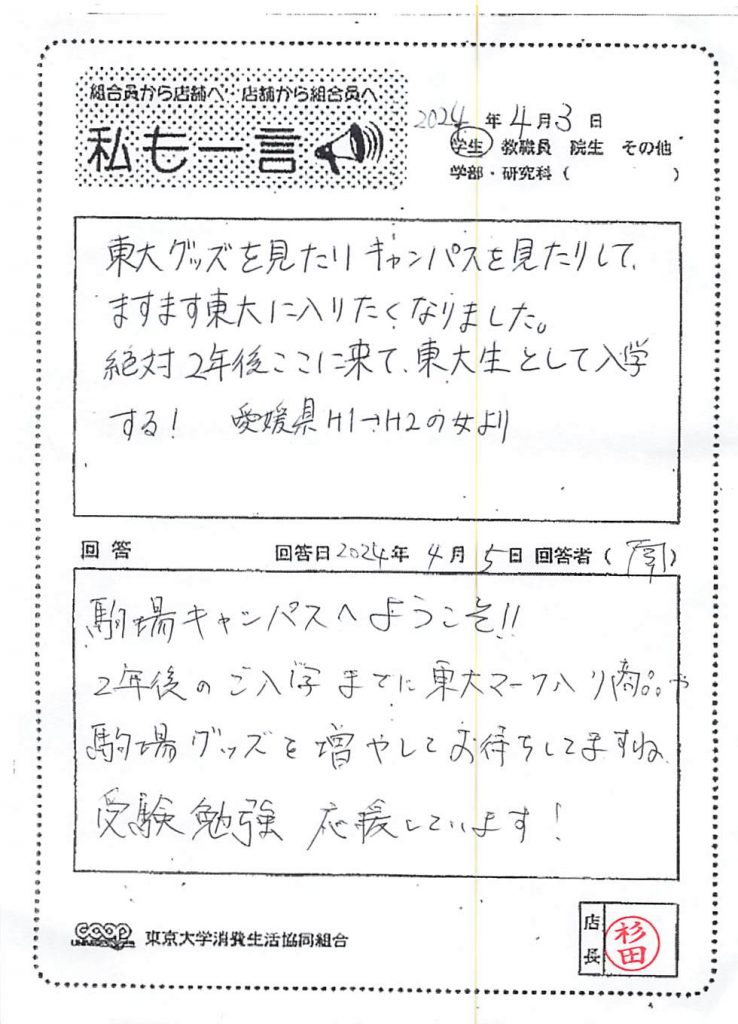 組合員から店舗へ・店舗から組合員へ
私も一言
2024年4月3日
学生 教職員 院生 その他
学部・研究科( )
東大グッズを見たりキャンパスを見たりして、
ますます東大に入りたくなりました。
絶対2年後ここに来て、東大生として入学
する! 愛媛県H1→H2の女より
回答 回答日2024年4月5日 回答者( )
駒場キャンパスへようこそ!!
2年後のご入学までに東大マーク入り商品や
駒場グッズを増やしてお待ちしてますね
受験勉強 応援しています!
COOP
東京大学消費生活協同組合
店長
杉田